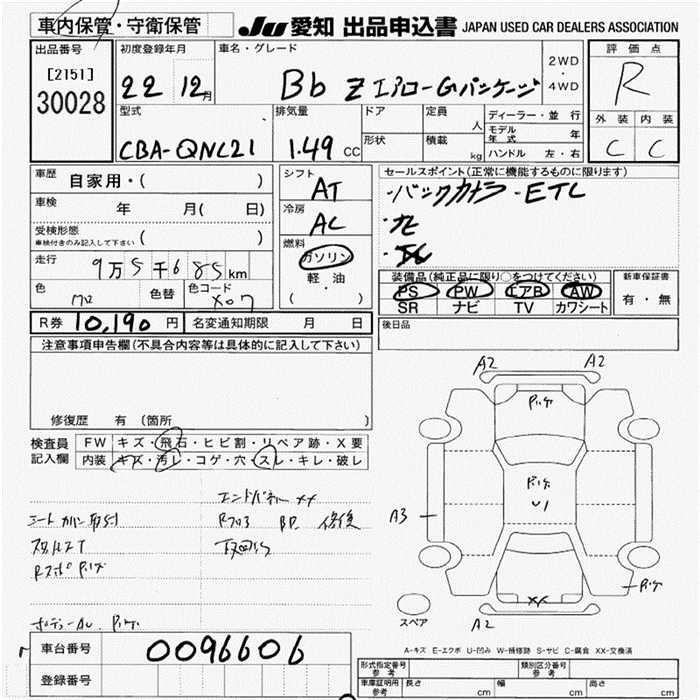 車内保管・守衛保管
JU 愛知 出品申込書 JAPAN USED CAR DEALERS ASSOCIATION
出品番号
[2151]
30028
初度登録年月
22 12月
車名・グレード
Bb Z エアロ-Gパッケージ
2WD
・
4WD
評価点
R
外装 内装
C C
型式
CBA-QNC21
排気量
1.49 CC
ドア
形状
定員
人
積載
kg
ディーラー・並行
モデル年式 年
ハンドル 左・右
車歴 自家用・( )
車検 年 月( 日)
受検形態
車検付きのみ記入して下さい ( )
走行 9万5千685km
色
色替
色コード
X07
シフト
AT
冷房
AC
燃料
ガソリン
軽・油
( ・ )
セールスポイント(正常に機能するものに限ります)
・バックカメラ・ETC
・ナビ
装備品(純正品に限り○をつけてください)
PS PW エアB AW
SR ナビ TV カワシート
新車保証書
有・無
R券 10,190円 名変通知期限 月 日
後日品
注意事項申告欄(不具合内容等は具体的に記入して下さい)
修復歴 有 (箇所 )
検査員
記入欄
FW キズ・飛石・ヒビ割・リペア跡・X要
内装 キズ・汚レ・コゲ・穴・スレ・キレ・破レ
エンドパネル XX
シートカバー
修後
A2 A2
A3
U1
XX
A2
スペア
A-キズ E-エクボ U-凹み W-補修跡 S-サビ C-腐食 XX-交換済
車台番号 0096606
登録番号
形式指定番号
参考
類別区分番号
参考
車庫証明用
参考
長さ cm 幅 cm 高さ cm